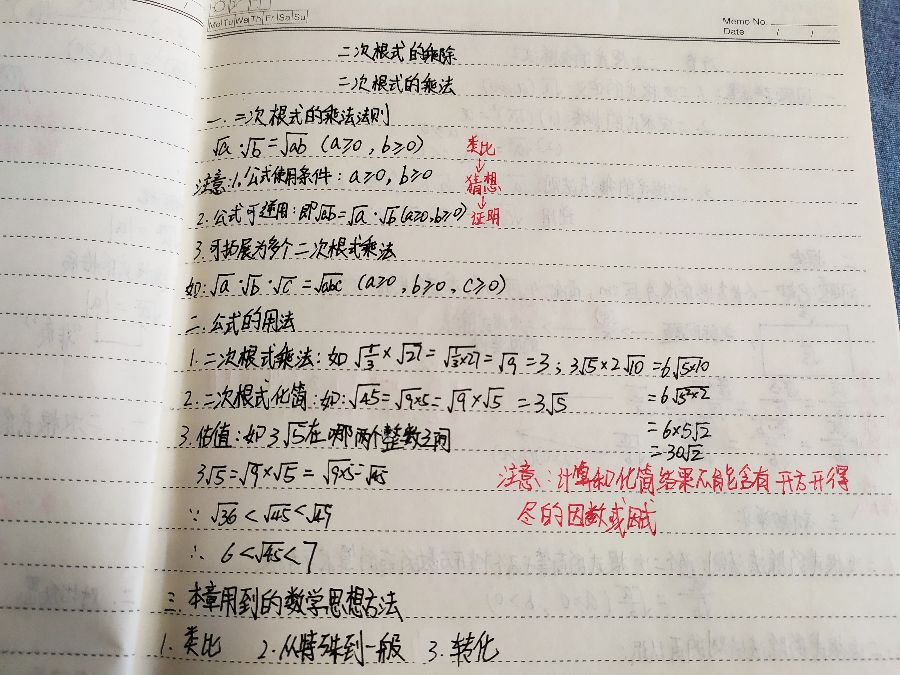 Mo Tu We Th Fr Sa Su
Memo No.
Date / /
二次根式的乘除
二次根式的乘法
一. 二次根式的乘法法则
√a·√b=√ab (a≥0,b≥0)
注意:1.公式使用条件: a≥0, b≥0
2.公式可逆用:即√ab=√a·√b(a≥0,b≥0)
3.可拓展为多个二次根式乘法
如:√a·√b·√c=√abc (a≥0,b≥0,c≥0)
类比
↓
猜想
↓
证明
二.公式的用法
1.二次根式乘法:如 √(1/3)×√27=√(1/3×27)=√9=3; 3√5×2√10=6√(5×10)
=6√(5²×2)
=6×5√2
=30√2
2.二次根式化简:如:√45=√(9×5)=√9×√5=3√5
3.估值:如3√5在哪两个整数之间
3√5=√9×√5=√(9×5)=√45
∵ √36<√45<√49
∴ 6<√45<7
注意:计算和化简结果不能含有开方开得
尽的因数或因式
三.本章用到的数学思想方法
1.类比 2.从特殊到一般 3.转化